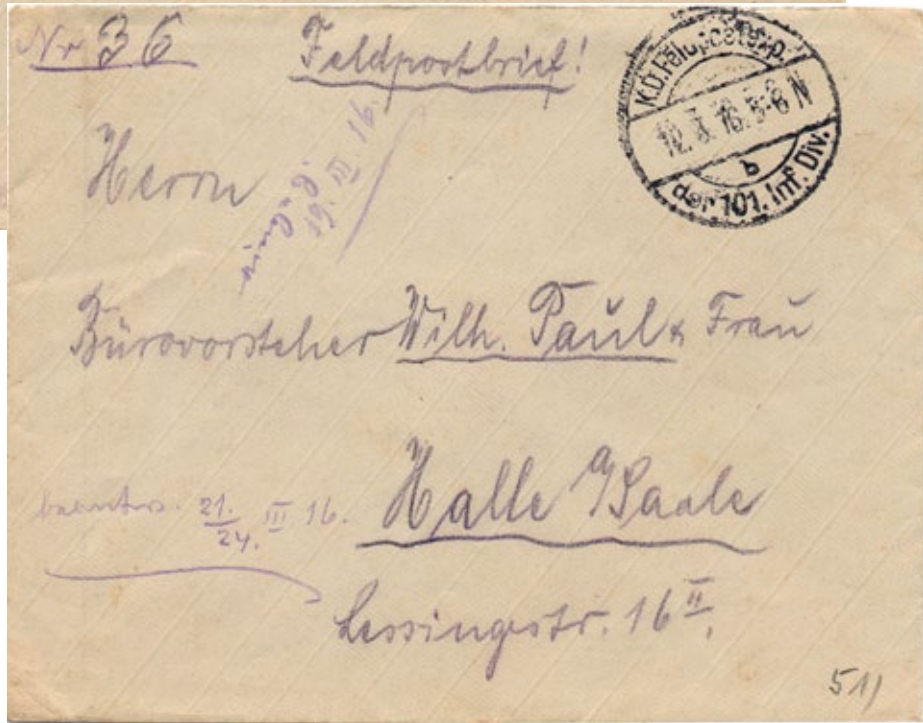 Nr 36
Feldpostbrief!
K.D. Feldpostexp.
12.3.16. 5-6 N
b
der 101. Inf. Div.
Herrn
Bürovorsteher Wilh. Paul & Frau
beantw. 21./24. III 16.
Halle a/Saale
Lessingstr. 16 II.
511